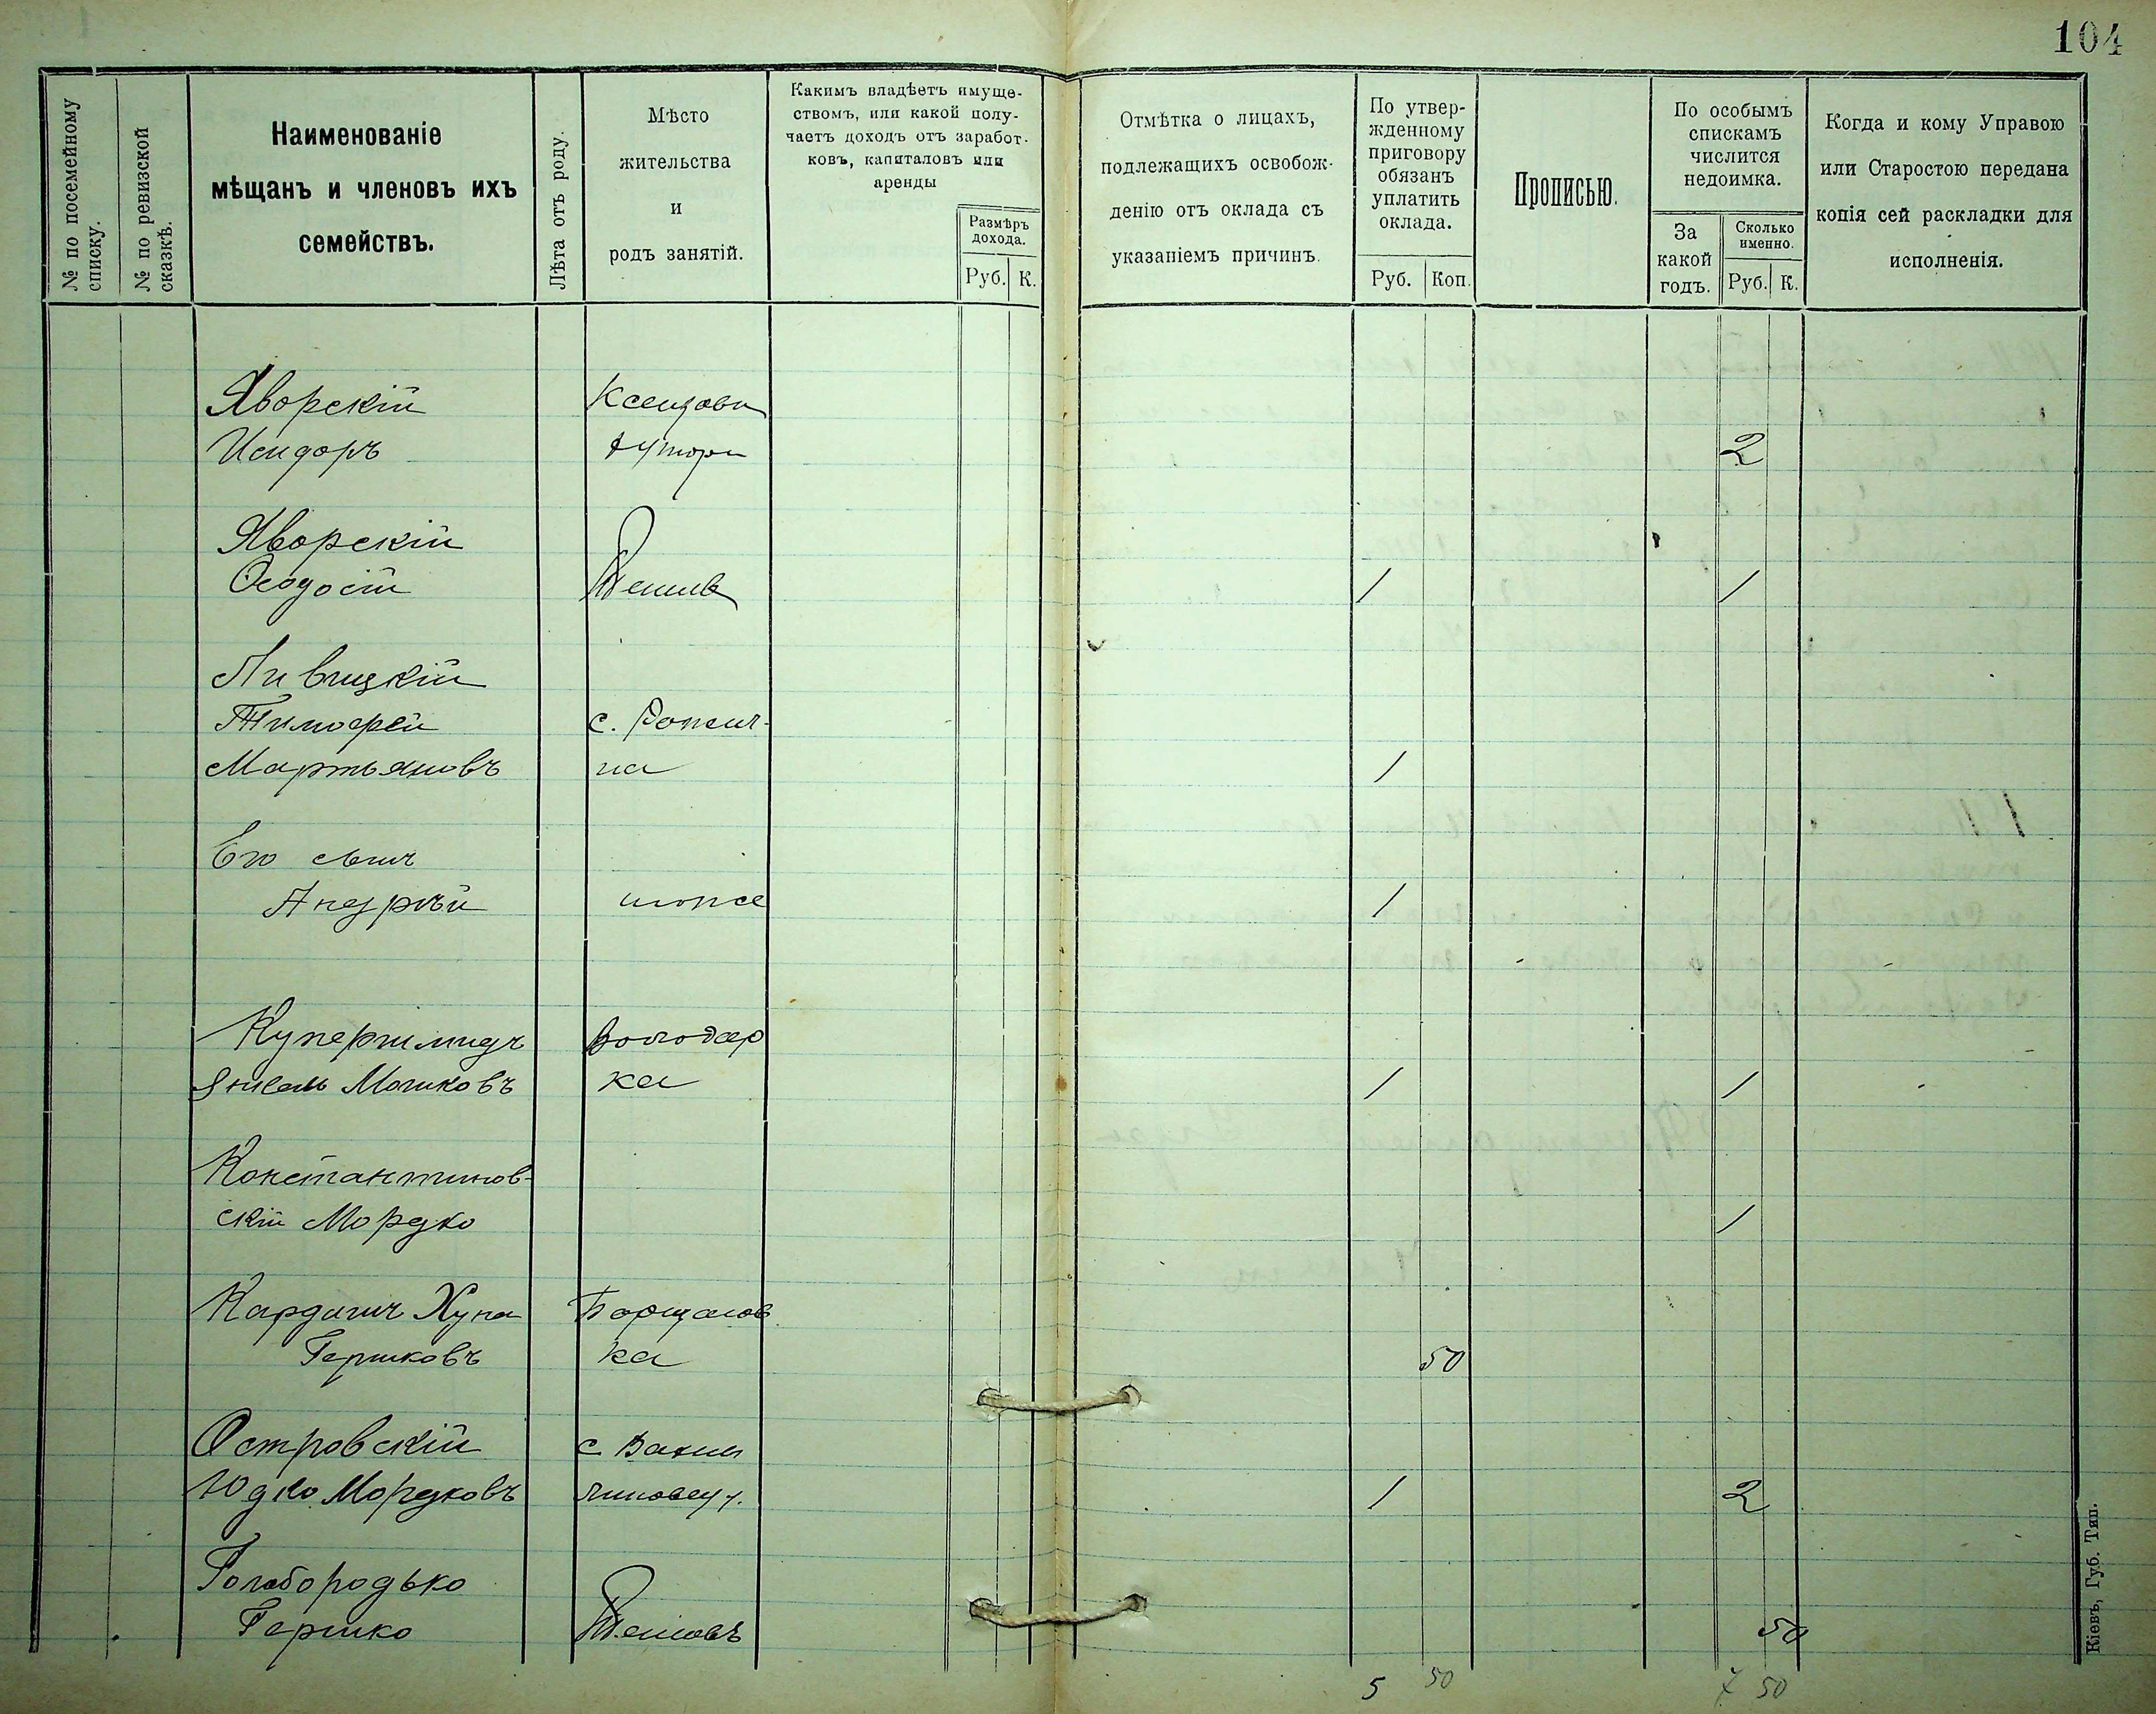 104
№ по посемейному
списку.
№ по ревизской
сказкѣ.
Наименованіе
мѣщанъ и членовъ ихъ
семействъ.
Лѣта отъ роду.
Мѣсто
жительства
и
родъ занятій.
Какимъ владѣетъ имуще-
ствомъ, или какой полу-
чаетъ доходъ отъ заработ-
ковъ, капиталовъ или
аренды
Размѣръ
дохода.
Руб. К.
Отмѣтка о лицахъ,
подлежащихъ освобож-
денію отъ оклада съ
указаніемъ причинъ.
По утвер-
жденному
приговору
обязанъ
уплатить
оклада.
Руб. Коп.
Прописью.
По особымъ
спискамъ
числится
недоимка.
За
какой
годъ.
Сколько
именно.
Руб. К.
Когда и кому Управою
или Старостою передана
копія сей раскладки для
исполненія.
Яворскій
Исидоръ 2
Яворскій
Ѳеодосій 1 1
Ливицкій
Тимофей с.
Мартьяновъ на 1
Его сынъ
Андрѣй тоже 1
Купершмидъ Володар
Янкель Мошковъ ка 1 1
Константинов-
скій Мордко 1
Хуна Борщагов
Гершковъ ка 50
Островскій с
Юдко Мордковъ 1 2
Голобородько
Гершко 50
5 50 7 50
Кіевъ, Губ. Тип.